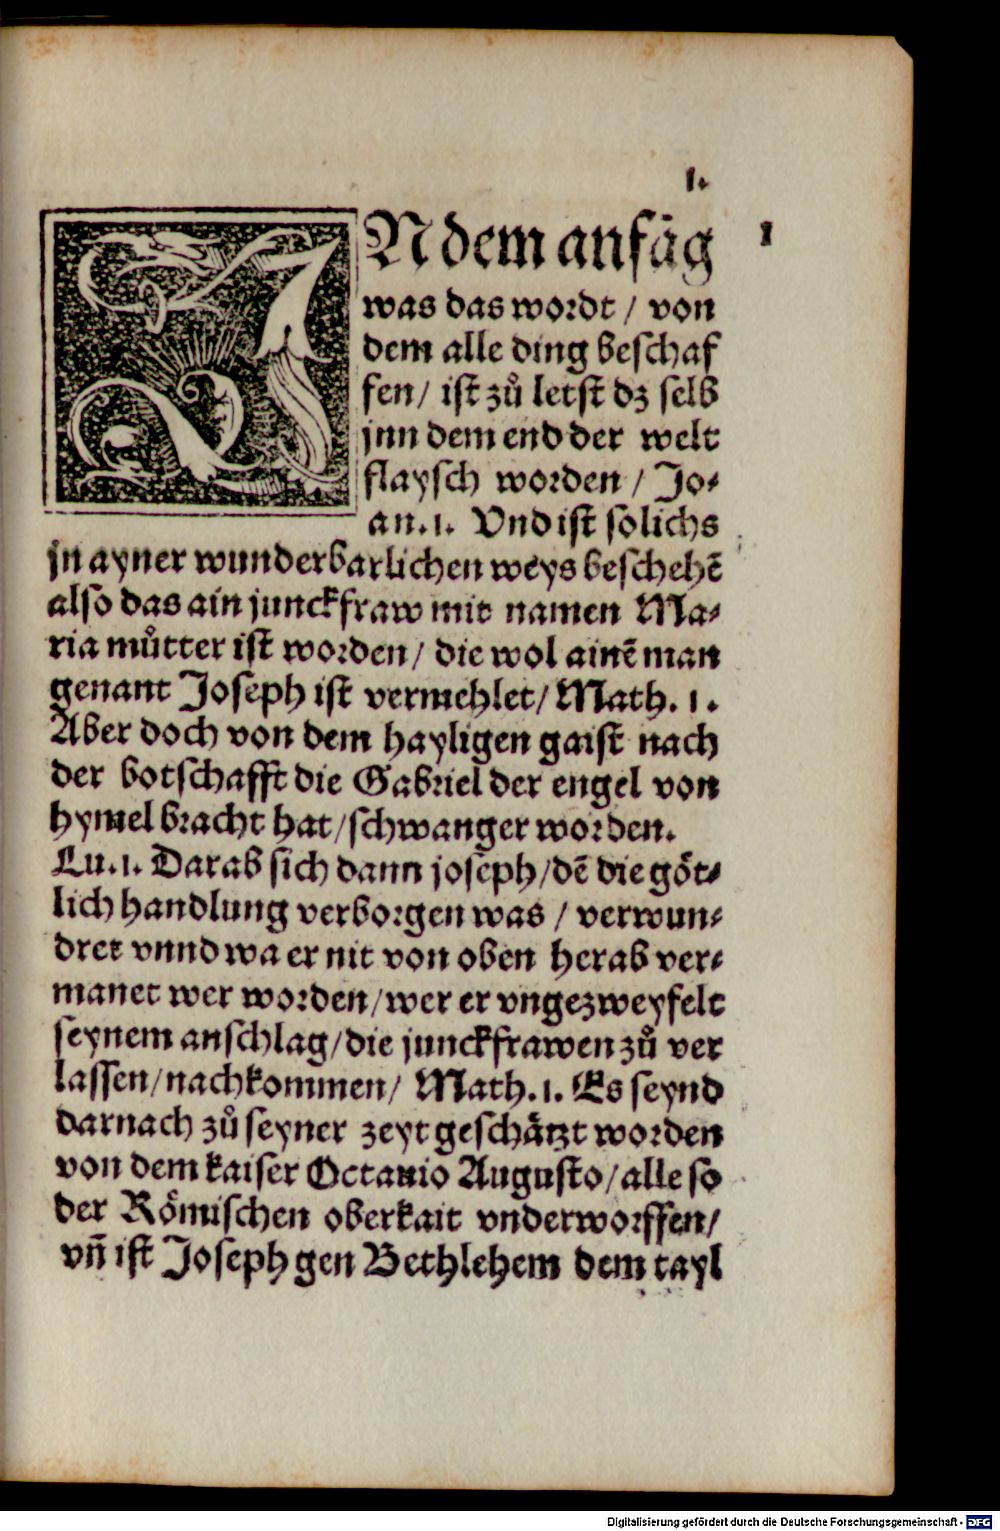 1.
1
IN dem anfãg
was das wordt / von
dem alle ding beschaf
fen / ist zů letst dz selb
jnn dem end der welt
flaysch worden / Jo-
an. 1. Vnd ist solichs
jn ayner wunderbarlichen weys beschehẽ
also das ain junckfraw mit namen Ma-
ria můtter ist worden / die wol ainẽ man
genant Joseph ist vermehlet / Math. 1.
Aber doch von dem hayligen gaist nach
der botschafft die Gabriel der engel von
hymel bracht hat / schwanger worden.
Lu. 1. Darab sich dann joseph / dẽ die göt-
lich handlung verborgen was / verwun-
dret vnnd wa er nit von oben herab ver-
manet wer worden / wer er vngezweyfelt
seynem anschlag / die junckfrawen zů ver
lassen / nachkommen / Math. 1. Es seynd
darnach zů seyner zeyt geschätzt worden
von dem kaiser Octauio Augusto / alle so
der Römischen oberkait vnderworffen /
vñ ist Joseph gen Bethlehem dem tayl
Digitalisierung gefördert durch die Deutsche Forschungsgemeinschaft - DFG